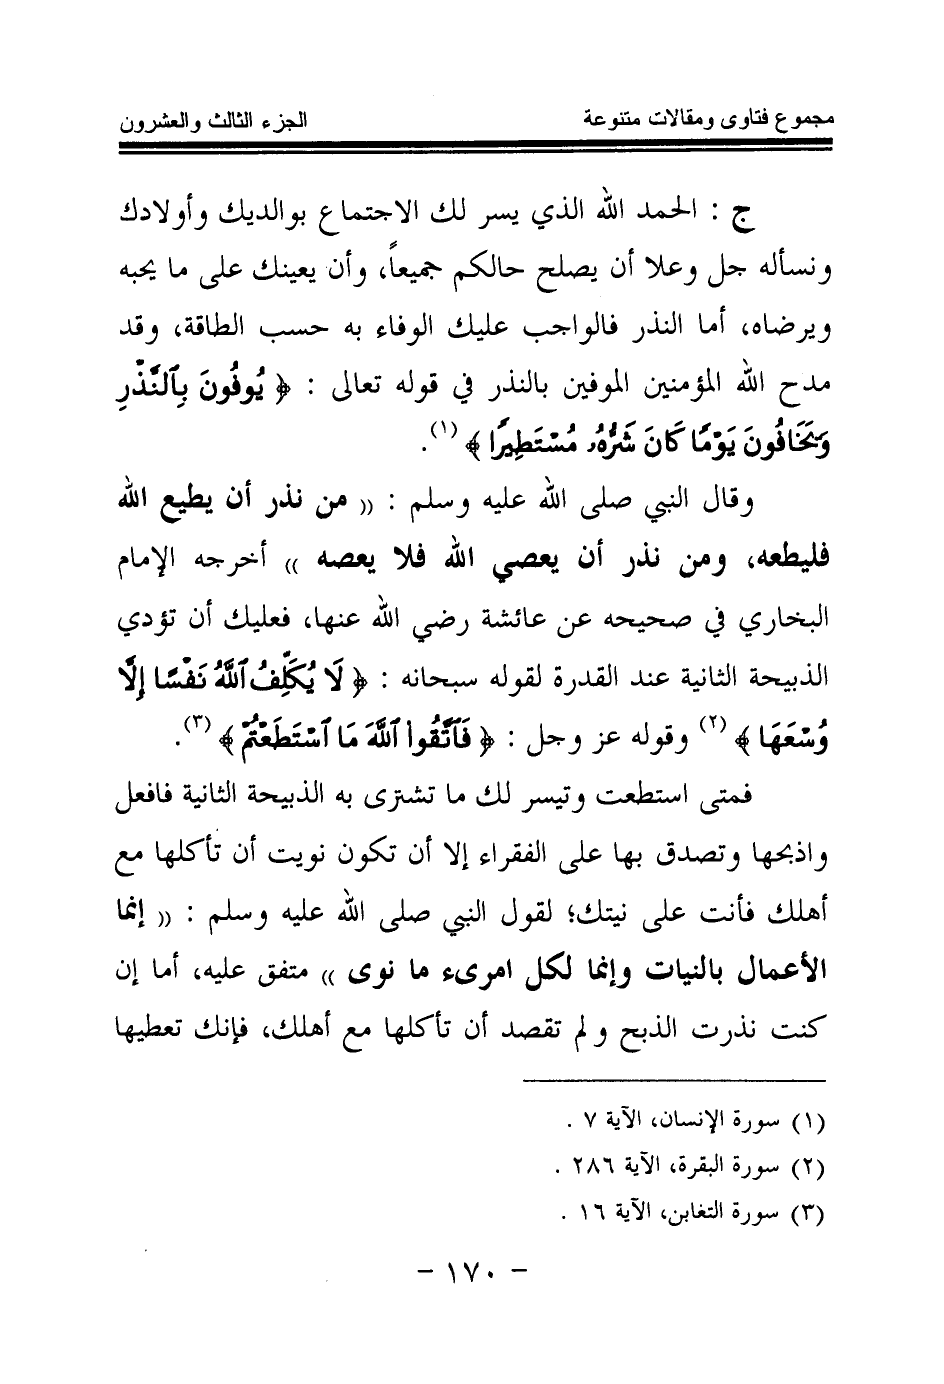 مجموع فتاوى ومقالات متنوعة الجزء الثالث والعشرون
ج : الحمد الله الذي يسر لك الاجتماع بوالديك وأولادك
ونسأله جل وعلا أن يصلح حالكم جميعاً، وأن يعينك على ما يحبه
ويرضاه، أما النذر فالواجب عليك الوفاء به حسب الطاقة، وقد
مدح الله المؤمنين الموفين بالنذر في قوله تعالى : ﴿ يُوفُونَ بِٱلنَّذْرِ
وَيَخَافُونَ يَوْمًا كَانَ شَرُّهُۥ مُسْتَطِيرًا ﴾ (١).
وقال النبي صلى الله عليه وسلم : (( من نذر أن يطيع الله
فليطعه، ومن نذر أن يعصي الله فلا يعصه )) أخرجه الإمام
البخاري في صحيحه عن عائشة رضي الله عنها، فعليك أن تؤدي
الذبيحة الثانية عند القدرة لقوله سبحانه : ﴿ لَا يُكَلِّفُ ٱللَّهُ نَفْسًا إِلَّا
وُسْعَهَا ﴾ (٢) وقوله عز وجل : ﴿ فَٱتَّقُوا۟ ٱللَّهَ مَا ٱسْتَطَعْتُمْ ﴾ (٣).
فمتى استطعت وتيسر لك ما تشترى به الذبيحة الثانية فافعل
واذبحها وتصدق بها على الفقراء إلا أن تكون نويت أن تأكلها مع
أهلك فأنت على نيتك؛ لقول النبي صلى الله عليه وسلم : (( إنما
الأعمال بالنيات وإنما لكل امرىء ما نوى )) متفق عليه، أما إن
كنت نذرت الذبح و لم تقصد أن تأكلها مع أهلك، فإنك تعطيها
(١) سورة الإنسان، الآية ٧ .
(٢) سورة البقرة، الآية ٢٨٦ .
(٣) سورة التغابن، الآية ١٦ .
- ١٧٠ -